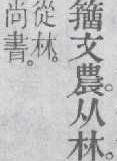 籀文農。从林。
從林。
尚書。